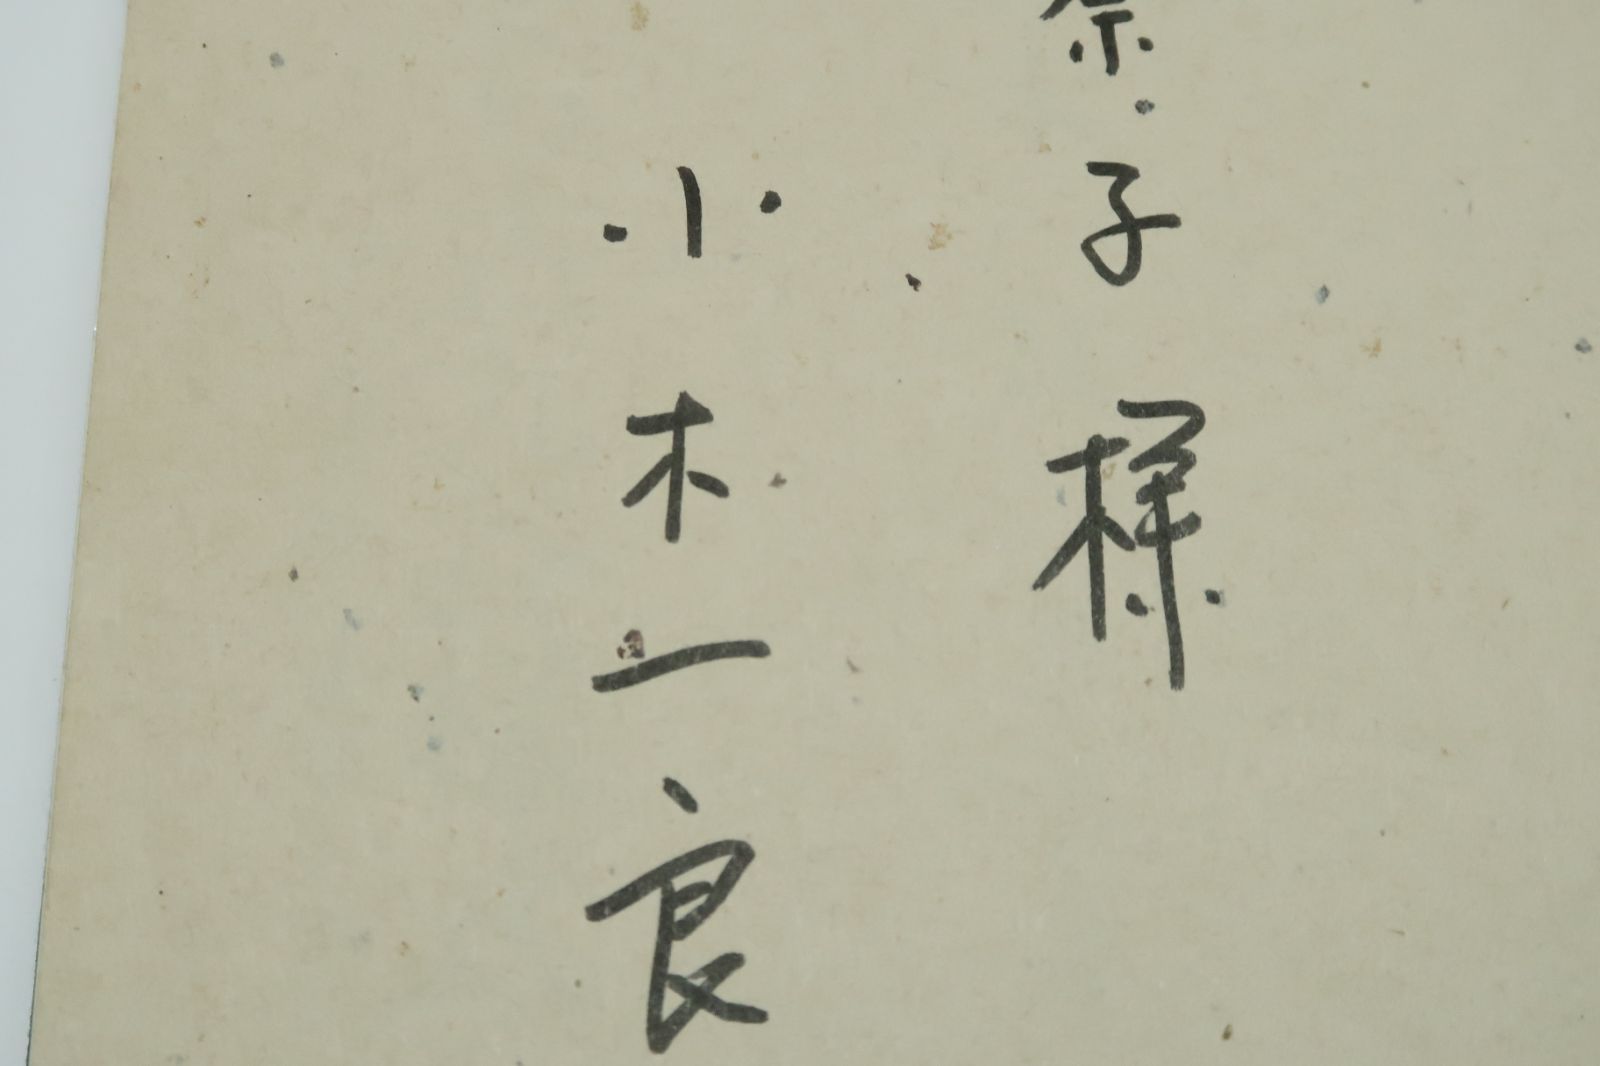 奈子様
小木一良